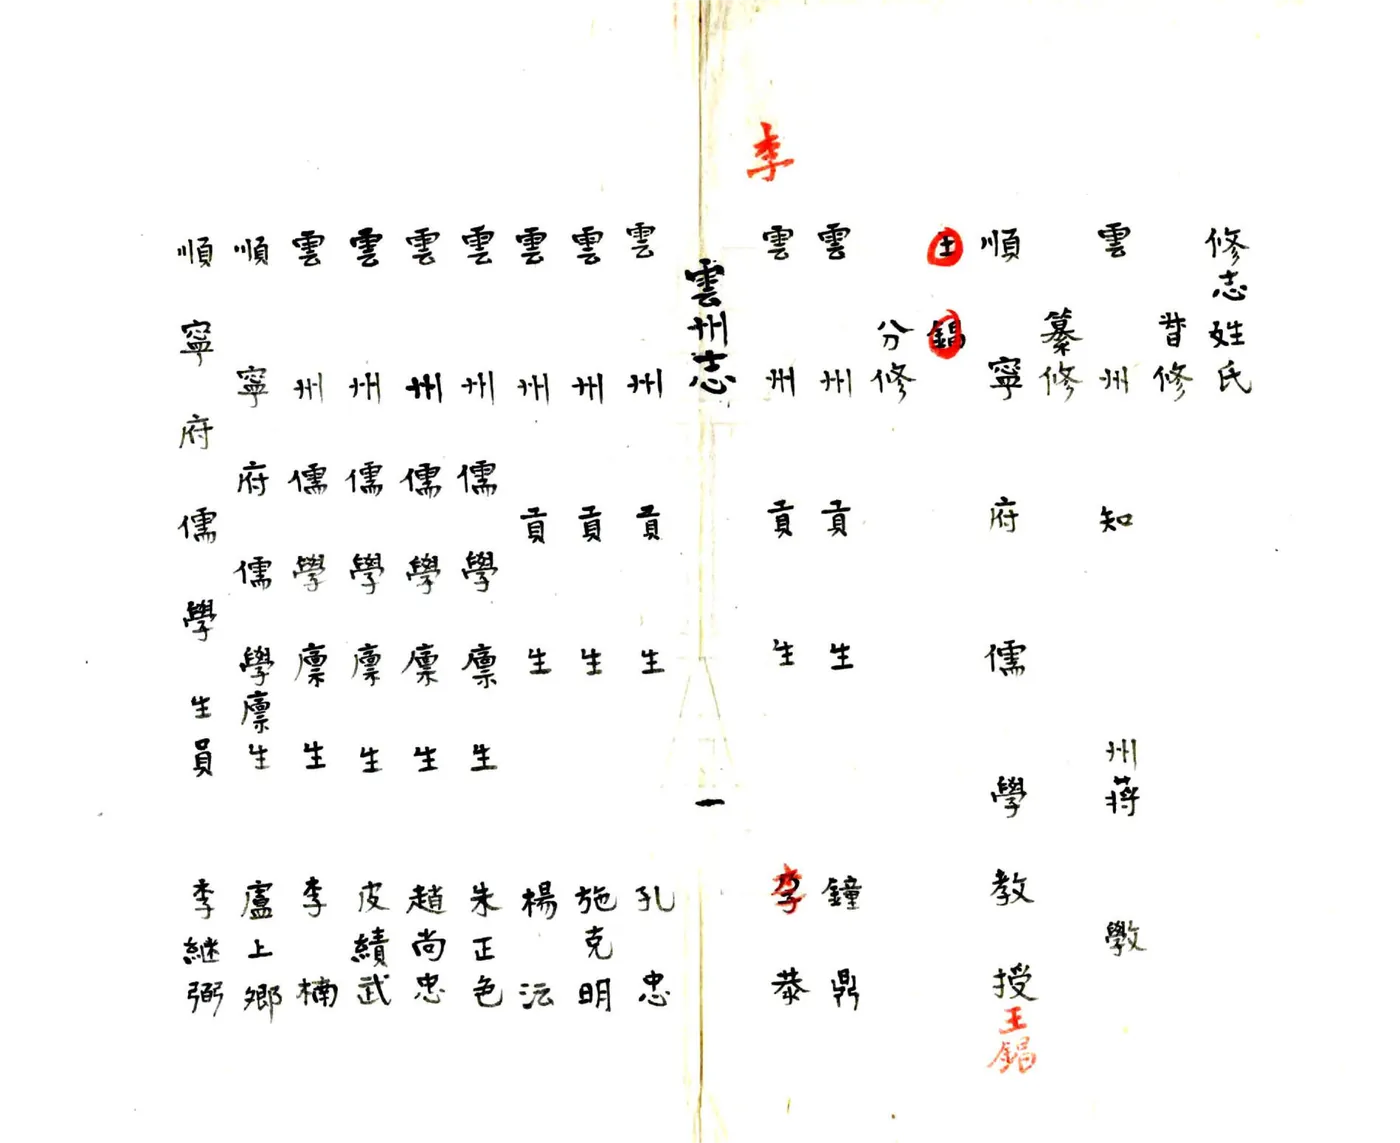 修志姓氏
督修
雲州知州蔣斅
纂修
順寧府儒學教授王錫
王錫
分修
雲州貢生鐘鼎
李
雲州貢生李恭
雲州志 一
雲州貢生孔忠
雲州貢生施克明
雲州貢生楊沄
雲州儒學廩生朱正色
雲州儒學廩生趙尚忠
雲州儒學廩生皮績武
雲州儒學廩生李楠
順寧府儒學廩生盧上鄉
順寧府儒學生員季継弼